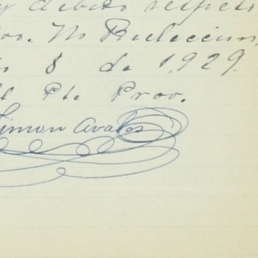 y debido respeto
os. No Reeleccion,
8 de 1929.
l Pte Prov.
Simon Avalos